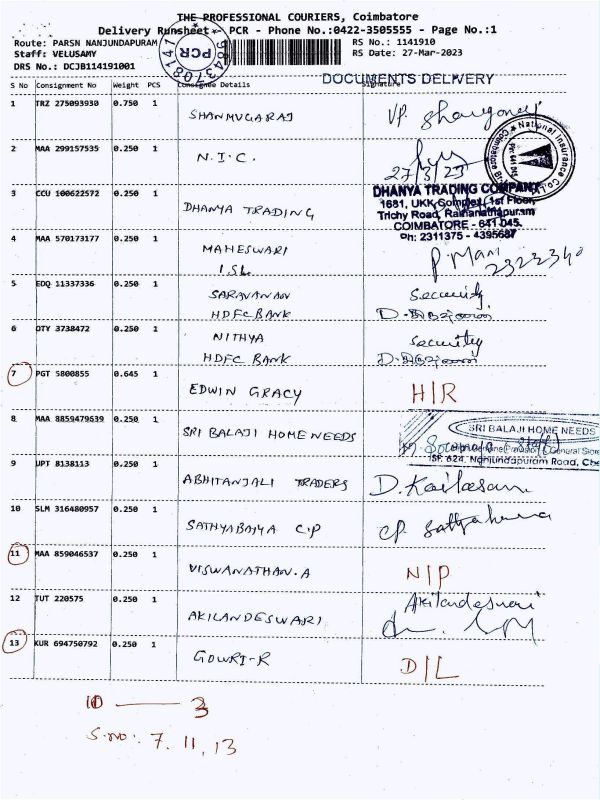 THE PROFESSIONAL COURIERS, Coimbatore
Delivery Runsheet - PCR - Phone No.:0422-3505555 - Page No.:1
Route: PARSN NANJUNDAPURAM
RS No.: 1141910
Staff: VELUSAMY
RS Date: 27-Mar-2023
DRS No.: DCJB114191001
PCR
9843708141
DOCUMENTS DELIVERY
S No Consignment No Weight PCS Consignee Details Signature
1 TRZ 275093930 0.750 1 SHANMUGARAJ
2 MAA 299157535 0.250 1 N.I.C. 27/3/23
National Insurance Co.
3 CCU 100622572 0.250 1 DHANYA TRADING
DHANYA TRADING COMPANY
1681, UKK Complex, 1st Floor,
Trichy Road, Ramanathapuram
COIMBATORE - 641 045.
Ph: 2311375 - 4395687
4 MAA 570173177 0.250 1 MAHESWARI P. Mani
2322340
5 EDQ 11337336 0.250 1 SARAVANAN Security
HDFC BANK
6 OTY 3738472 0.250 1 NITHYA Security
HDFC BANK
7 PGT 5800855 0.645 1 EDWIN GRACY H|R
8 MAA 8859479639 0.250 1 SRI BALAJI HOME NEEDS
SRI BALAJI HOME NEEDS
General Store
SF. 624, Nanjundapuram Road,
9 UPT 8138113 0.250 1 ABHITANJALI TRADERS D. Kailasam
10 SLM 316480957 0.250 1 SATHYABAMA C.P
11 MAA 859046537 0.250 1 VISWANATHAN.A N|P
12 TUT 220575 0.250 1 AKILANDESWARI Akilandeswari
13 KUR 694750792 0.250 1 GOWRI-R D|L
10 — 3
S.no: 7, 11, 13